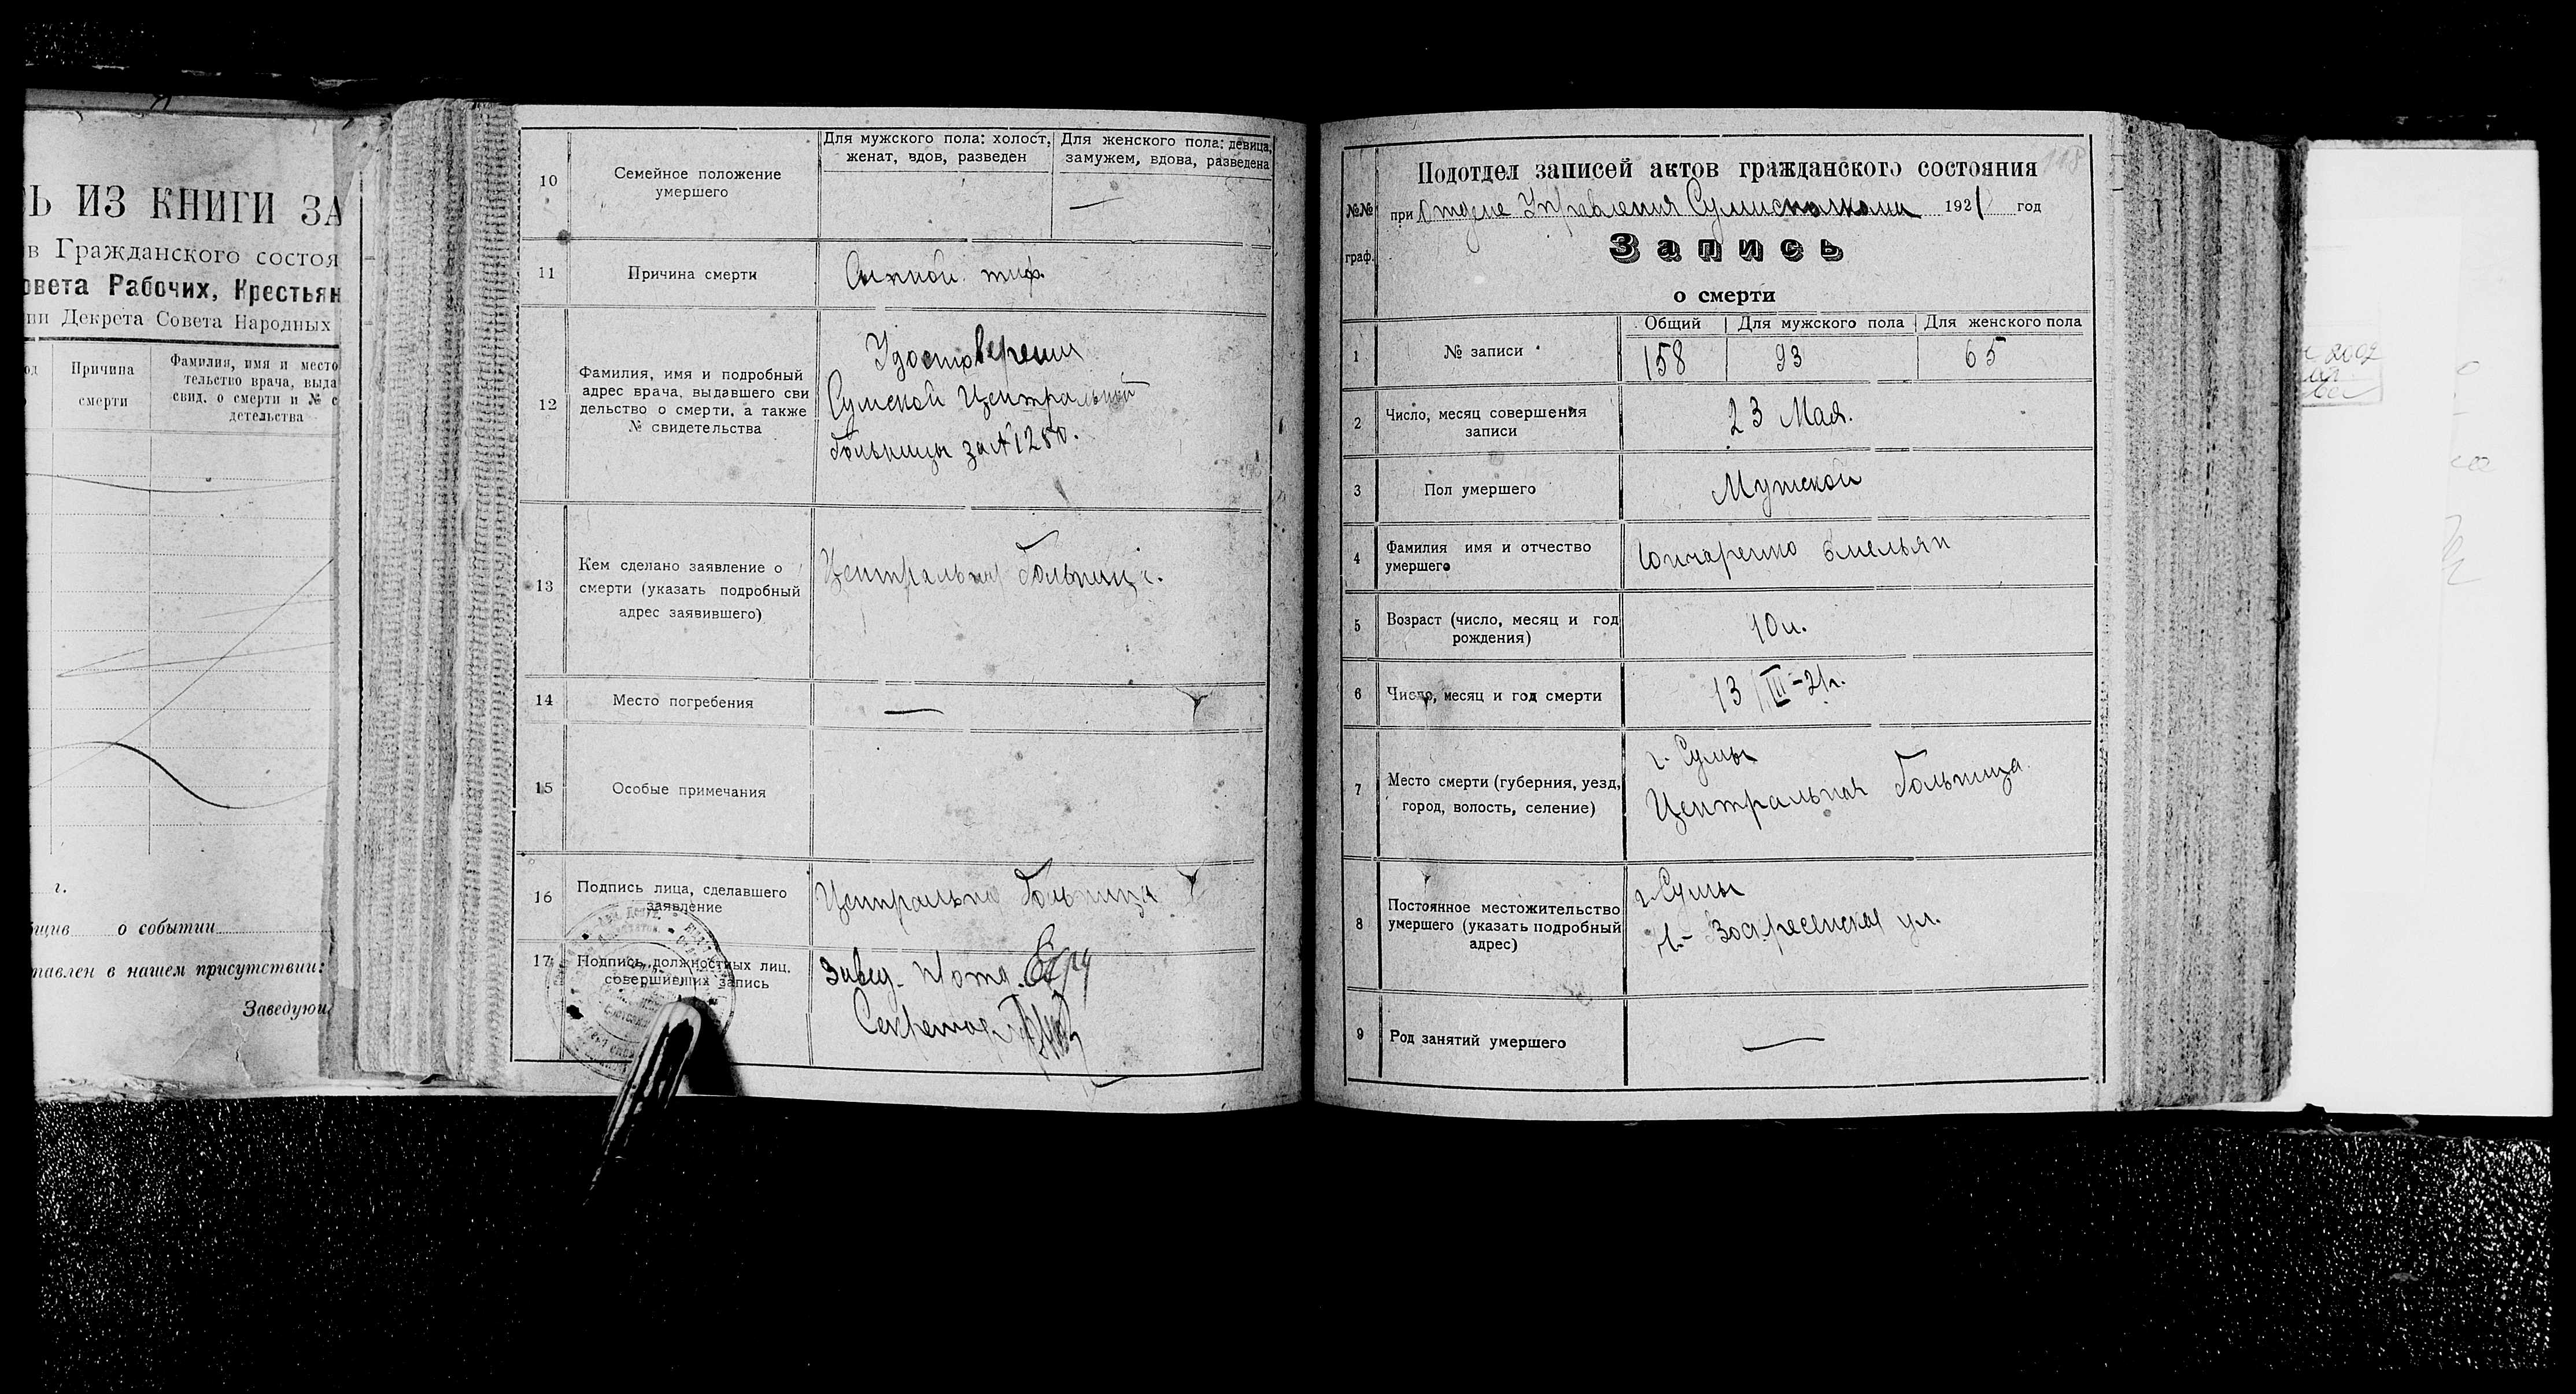 ИЗ КНИГИ ЗА
в Гражданского состоя
овета Рабочих, Крестьян
ии Декрета Совета Народных
Причина
смерти
Фамилия, имя и место
тельство врача, выда
свид. о смерти и № с
детельства
г.
бщив о событии
тавлен в нашем присутствии:
Заведующ
10
Семейное положение
умершего
Для мужского пола: холост,
женат, вдов, разведен
Для женского пола: девица,
замужем, вдова, разведена
—
11
Причина смерти
Сыпной тиф.
12
Фамилия, имя и подробный
адрес врача, выдавшего сви
дельство о смерти, а также
№ свидетельства
Удостоверения
Сумской Центральной
больницы за № 1280.
13
Кем сделано заявление о
смерти (указать подробный
адрес заявившего)
Центральная больница.
14
Место погребения
—
15
Особые примечания
16
Подпись лица, сделавшего
заявление
Центральна больница
17
Подпись должностных лиц,
совершивших запись
Завед. п/отд.
Секретарь
118
№№
граф.
Подотдел записей актов гражданского состояния
при Отделе Управления Сумисполкома 1921 год
Запись
о смерти
1
№ записи
Общий
Для мужского пола
Для женского пола
158
93
65
2
Число, месяц совершения
записи
23 Мая.
3
Пол умершего
Мужской
4
Фамилия имя и отчество
умершего
Гончаренко Емельян
5
Возраст (число, месяц и год
рождения)
10 л.
6
Число, месяц и год смерти
13/III-21г.
7
Место смерти (губерния, уезд,
город, волость, селение)
г. Сумы
Центральная больница
8
Постоянное местожительство
умершего (указать подробный
адрес)
г. Сумы
Н.- Воскресенская ул.
9
Род занятий умершего
—
2002